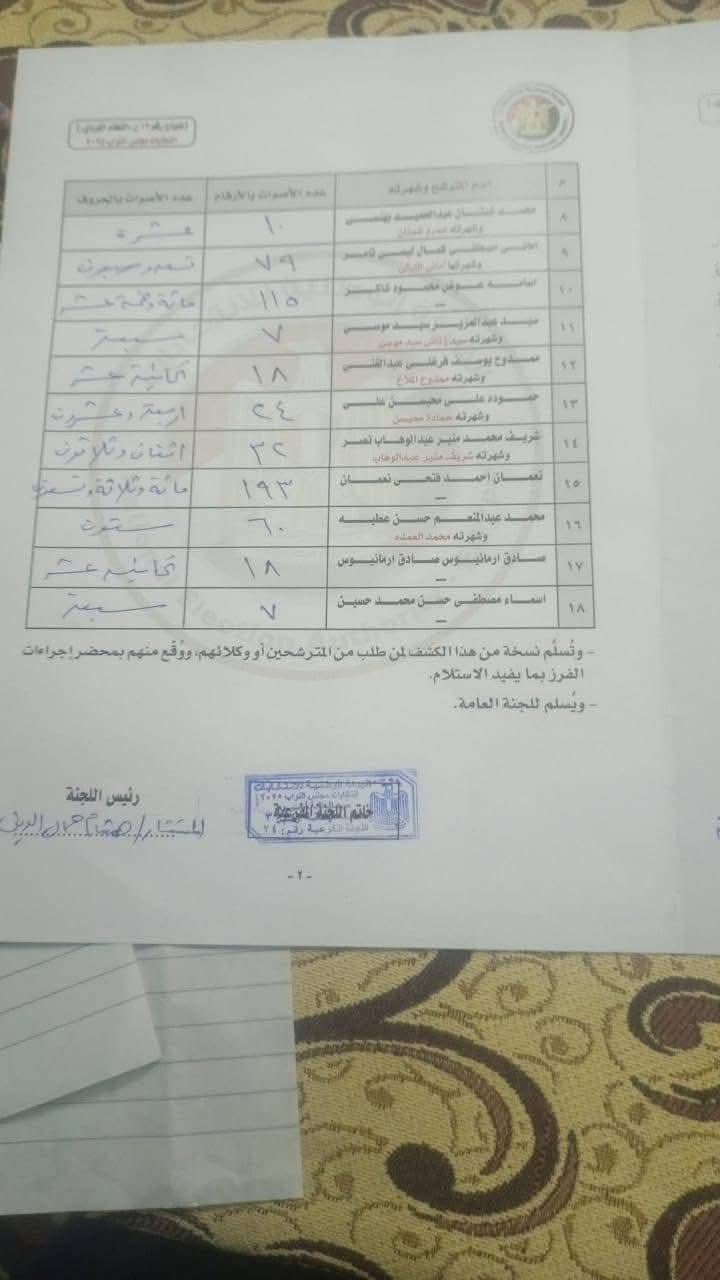 انتخابات مجلس النواب ٢٠٢٥
م
اسم المترشح وشهرته
عدد الأصوات بالأرقام
عدد الأصوات بالحروف
٨
محمد شعبان عبدالحميد
وشهرته
١٠
عشرة
٩
امانى مصطفى كمال
وشهرتها
٧٩
تسعة وسبعون
١٠
اسامه عوض محمود شاكر
١١٥
مائة وخمسة عشر
١١
سيد عبدالعزيز سيد موسى
وشهرته سيد
٧
سبعة
١٢
ممدوح يوسف فرغلى عبدالغنى
وشهرته ممدوح الفلاح
١٨
ثمانية عشر
١٣
حموده على محيسن على
وشهرته حمادة محيسن
٢٤
اربعة وعشرون
١٤
شريف محمد منير عبدالوهاب نصر
وشهرته شريف منير عبدالوهاب
٣٢
اثنان وثلاثون
١٥
نعمان احمد فتحى نعمان
١٩٣
مائة وثلاثة وتسعون
١٦
محمد عبدالمنعم حسن عطيه
وشهرته محمد العمده
٦٠
ستون
١٧
صادق ارمانيوس صادق ارمانيوس
١٨
ثمانية عشر
١٨
اسماء مصطفى حسن محمد حسين
٧
سبعة
- وتُسلَّم نسخة من هذا الكشف لمن طلب من المترشحين أو وكلائهم، ووُقع منهم بمحضر إجراءات
الفرز بما يفيد الاستلام.
- ويُسلم للجنة العامة.
رئيس اللجنة
المستشار/ هشام جمال الدين
الهيئة الوطنية للانتخابات
انتخابات مجلس النواب ٢٠٢٥
خاتم اللجنة الفرعية
اللجنة الفرعية رقم: ٢٤
-٢-